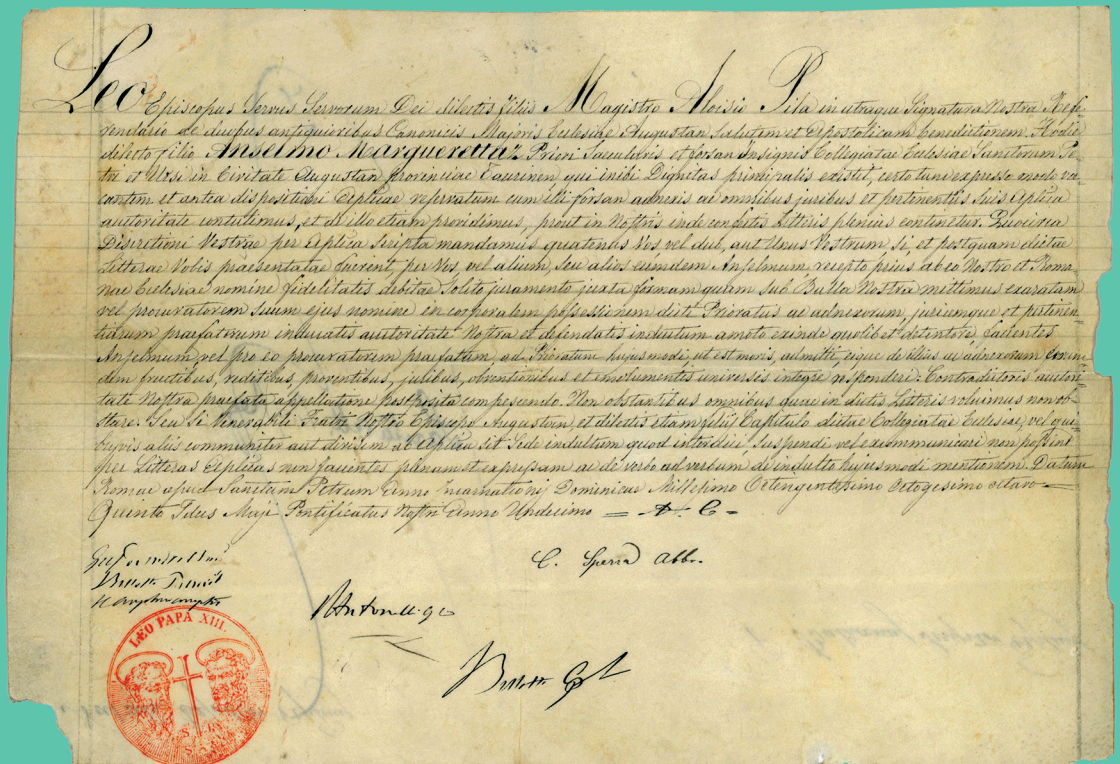 Leo Episcopus Servus Servorum Dei dilectis filiis Magistro Aloisio Pila in utraque Signatura Nostra Refe-
rendario de duobus antiquioribus Canonicis Majoris Eclesiae Augustan Salutem et Apostolicam Benedictionem. Hodie
dilecto filio Anselmo Marguerettaz Priori Saecularis et forsan Insignis Collegiatae Eclesiae Sanctorum Pe-
tri et Ursi in Civitate Augustan provinciae Taurinen qui inibi Dignitas principalis existit, certo tunc expresso modo va-
cantem et antea dispositioni Aplicae reservatum cum illi forsan adnexis ac omnibus juribus et pertinentiis suis Aplica
autoritate contulimus, et de illo etiam providimus, prout in Nostris inde confectis Litteris plenius continetur. Quocirca
Discretioni Vestrae per Aplica Scripta mandamus quatenus Vos vel duo, aut Unus Vestrum Si, et postquam dictae
Litterae Vobis praesentatae fuerint, per Vos, vel alium, seu alios eumdem Anselmum, recepto prius ab eo Nostro et Roma-
nae Eclesiae nomine fidelitatis debitae solito juramento juxta formam quam sub Bulla Nostra mittimus exaratam
vel procuratorem suum ejus nomine in corporalem possessionem dicti Prioratus ac adnexorum, juriumque et pertinen-
tiarum praefatorum inducatis autoritate Nostra et defendatis inductum amoto exinde quolibet detentore, facientes
Anselmum vel pro eo procuratorem praefatum, ad Prioratum hujusmodi ut est moris, admitti, eique de illius ac adnexorum eorum-
dem fructibus, redditibus, proventibus, juribus, obventionibus et emolumentis universis integre responderi. Contradictoris autori-
tate Nostra praefata appellatione postposita compescendo. Non obstantibus omnibus quae in dictis Litteris voluimus non ob-
stare. Seu si Venerabili Fratri Nostro Episcopo Augustan, et dilectis etiam filiis Capitulo dictae Collegiatae Eclesiae, vel qui-
busvis aliis communiter aut divisim ab Aplica sit Sede indultum quod interdici, suspendi vel excommunicari non possint
per Litteras Aplicas non facientes plenam et expressam ac de verbo ad verbum de indulto hujusmodi mentionem. Datum
Romae apud Sanctum Petrum Anno Incarnationis Dominicae Millesimo Octengentesimo octogesimo octavo
Quinto Idus Maji Pontificatus Nostri Anno Undecimo = A. C =
C. Sperra Abbr.
LEO PAPA XIII.